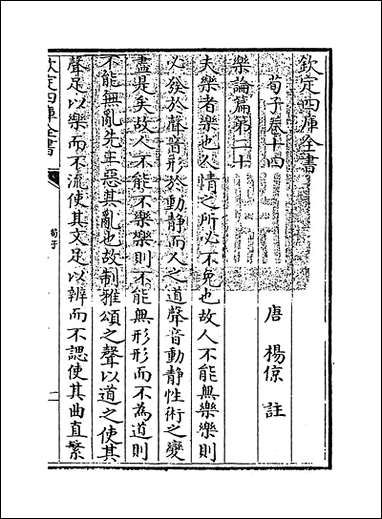 欽定四庫全書
荀子卷十四
唐 楊倞 註
樂論篇第二十
夫樂者樂也人情之所必不免也故人不能無樂樂則
必發於聲音形於動靜而人之道聲音動靜性術之變
盡是矣故人不能不樂樂則不能無形形而不為道則
不能無亂先王惡其亂也故制雅頌之聲以道之使其
聲足以樂而不流使其文足以辨而不諰使其曲直繁
欽定四庫全書
荀子
一